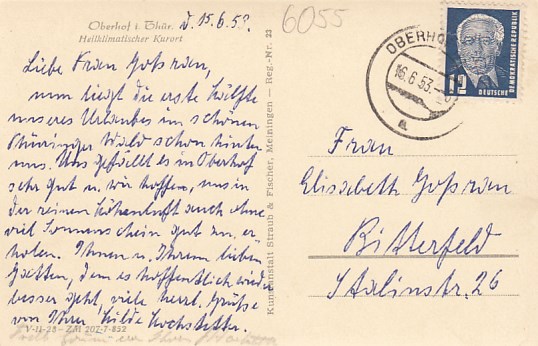 Oberhof i. Thür.
Heilklimatischer Kurort
d. 15.6.53.
6055
Liebe Frau Goßrau,
nun liegt die erste Hälfte
unseres Urlaubes im schönen
Thüringer Wald schon hinter
uns. Uns gefällt es in Oberhof
sehr gut u. wir hoffen, uns in
der reinen Höhenluft auch ohne
viel Sonnenschein gut zu er-
holen. Ihnen u. Ihrem lieben
Gatten, dem es hoffentlich wieder
besser geht, viele herzl. Grüße
von Ihrer Hilde Hochstetter.
V-11-28 - ZM 207-7-852
Kunstanstalt Straub & Fischer, Meiningen — Reg.-Nr. 23
OBERHO
16.6.53.
a
12
DEUTSCHE
DEMOKRATISCHE REPUBLIK
Frau
Elisabeth Goßrau
Bitterfeld
Stalinstr. 26